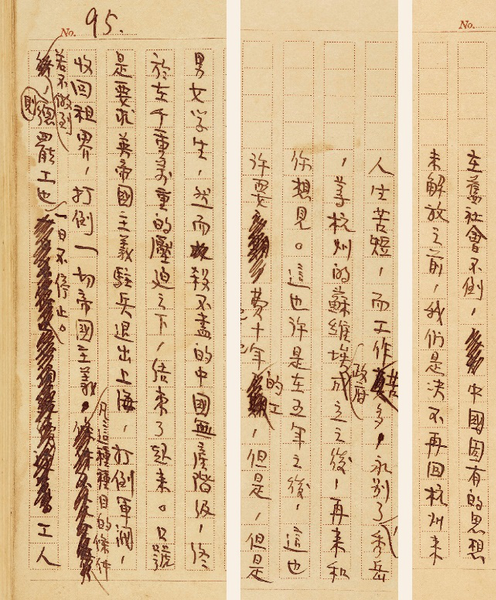 No.
在舊社會不倒，中國固有的思想
未解放之前，我們是決不再回杭州来
人生苦短，而工作苦多，永别了秀岳
，等杭州的蘇維埃政府成立之後，再来和
你想見。這也許是在五年之後，這也
許要費十年的工，但是，但是
No. 95.
男女学生，然而殺不盡的中國無産階級，终
於在千重萬重的壓迫之下，结束了起来。口號
是要求英帝國主義駐兵退出上海，打倒軍閥，
收回租界，打倒一切帝國主義。凡這種種目的條件
若不做到，則總罷工也一日不停止。工人